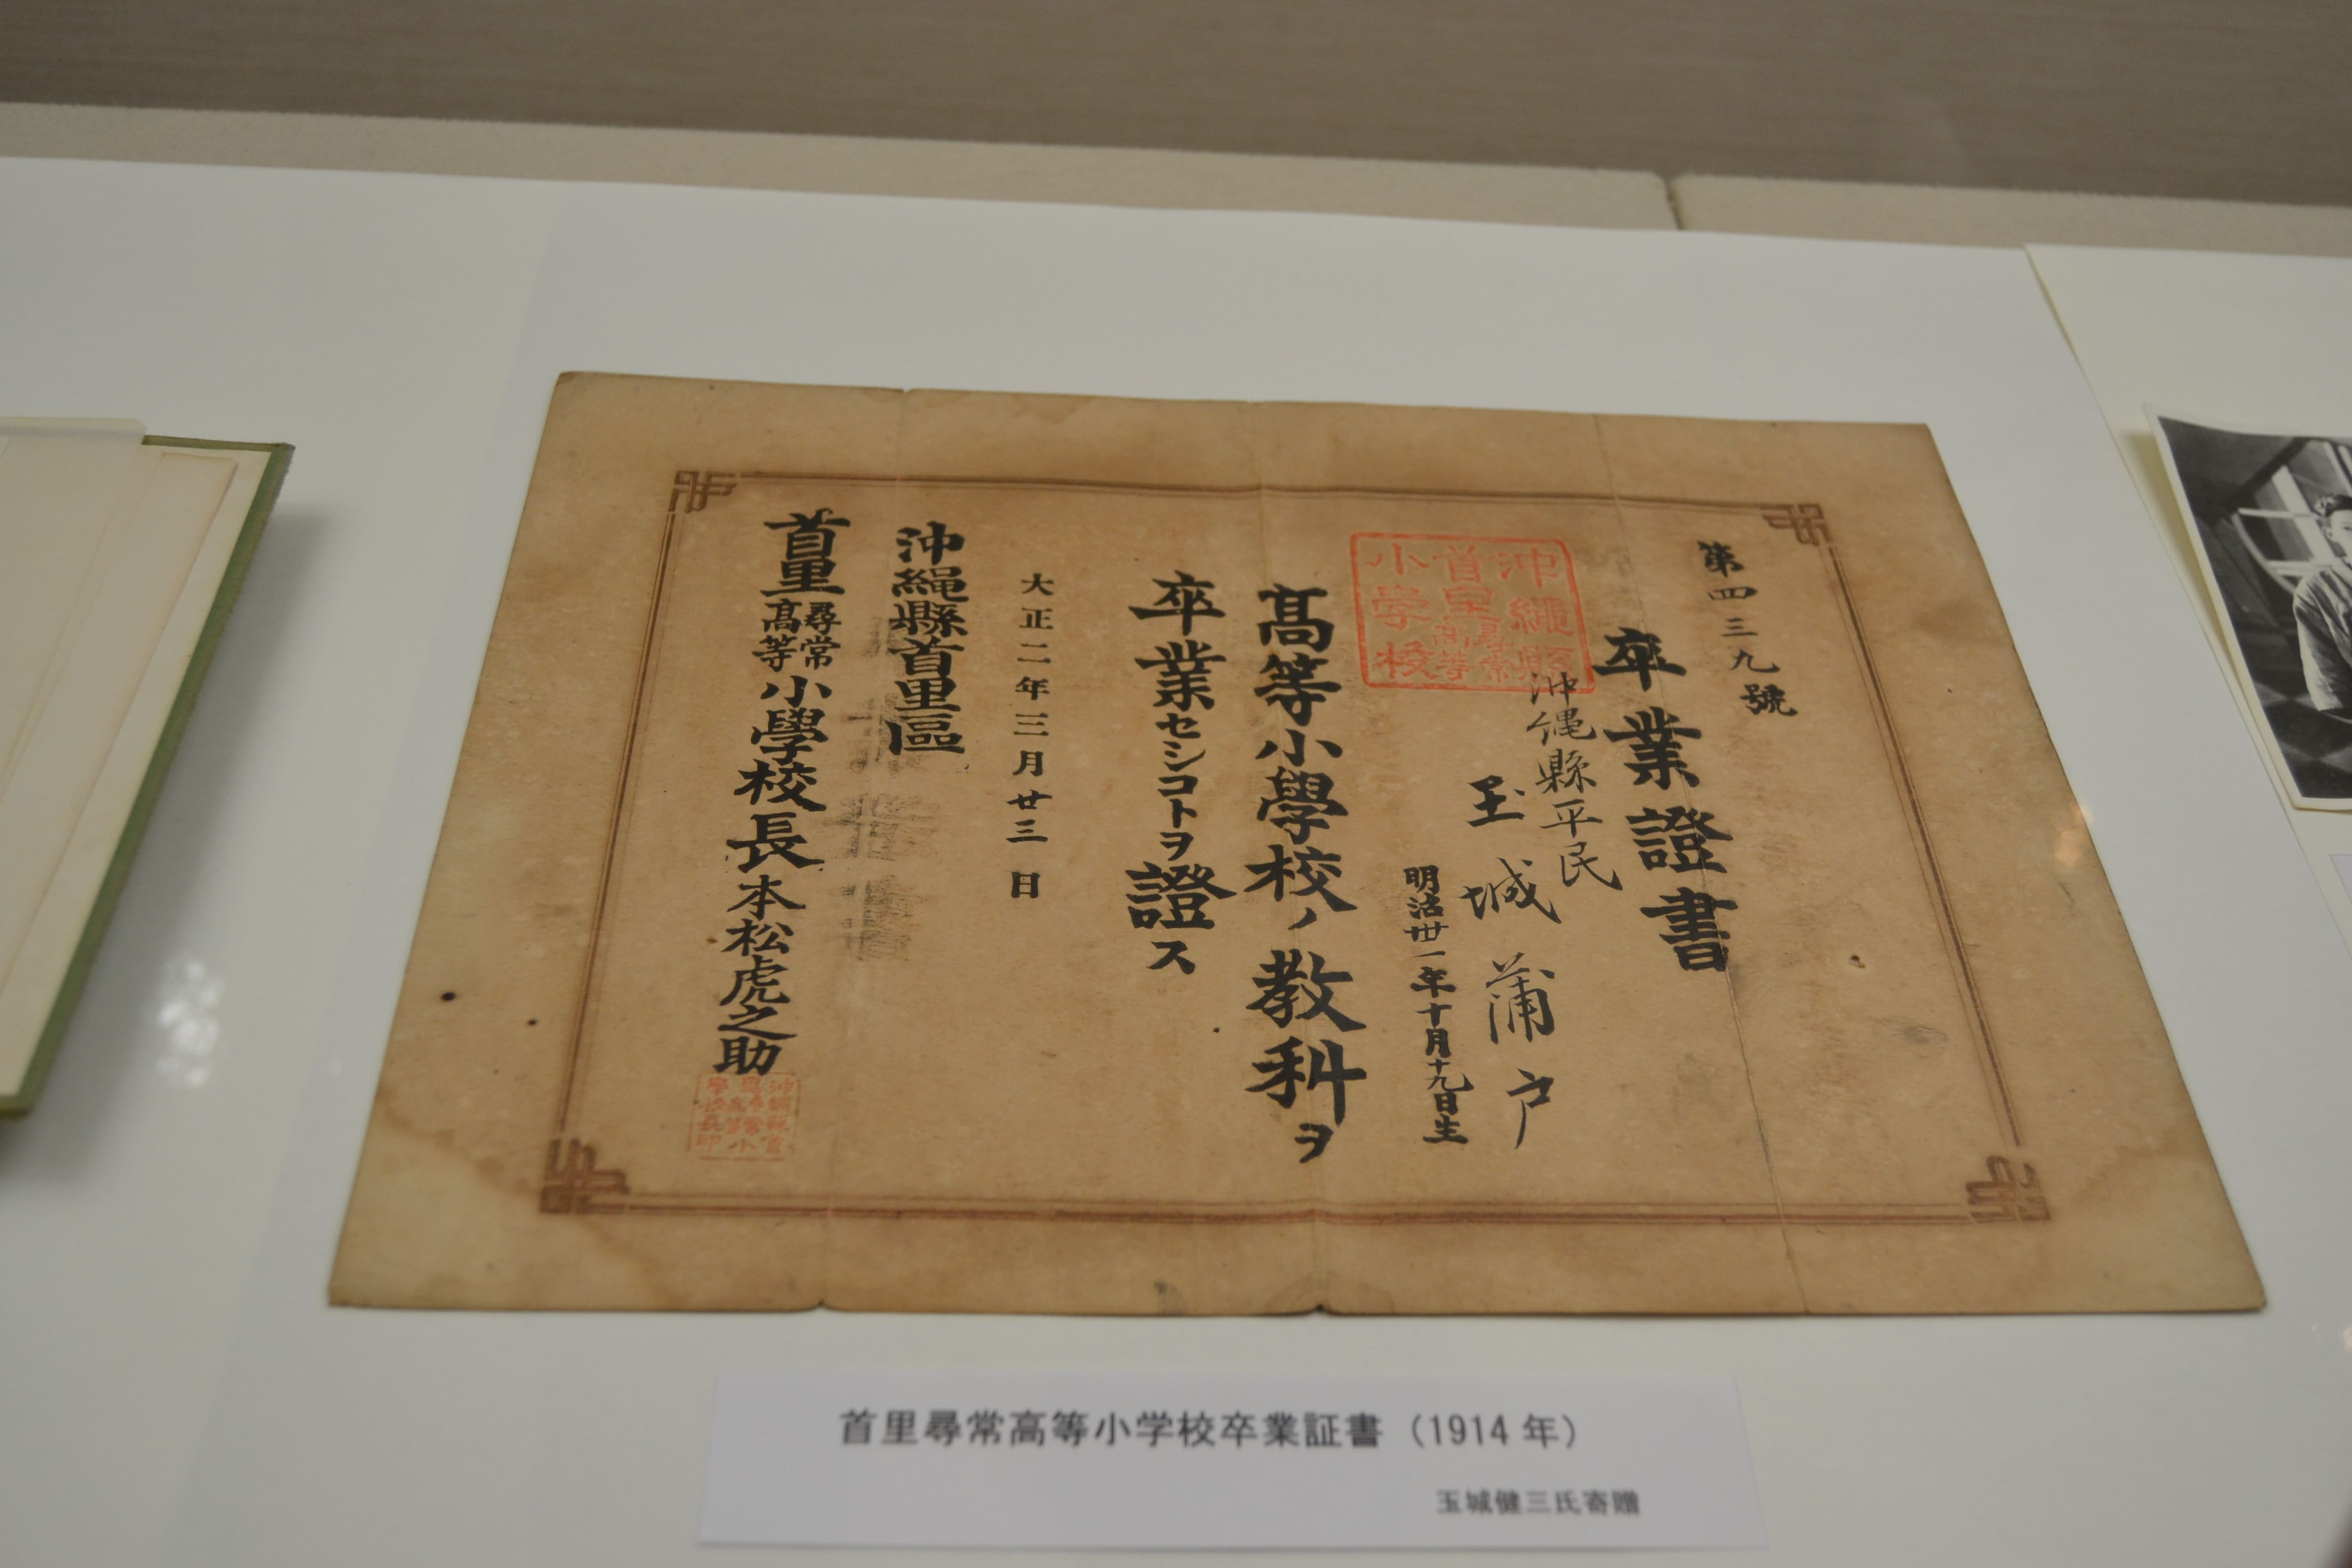 第四三九號
卒業證書
沖縄縣平民
玉城蒲戸
明治卅一年十月十九日生
高等小學校ノ教科ヲ
卒業セシコトヲ證ス
大正二年三月廿三日
沖縄縣首里區
首里尋常高等小學校長本松虎之助
沖縄縣
首里尋常高等
小學校
首里尋常高等小学校卒業証書（1914年）
玉城健三氏寄贈